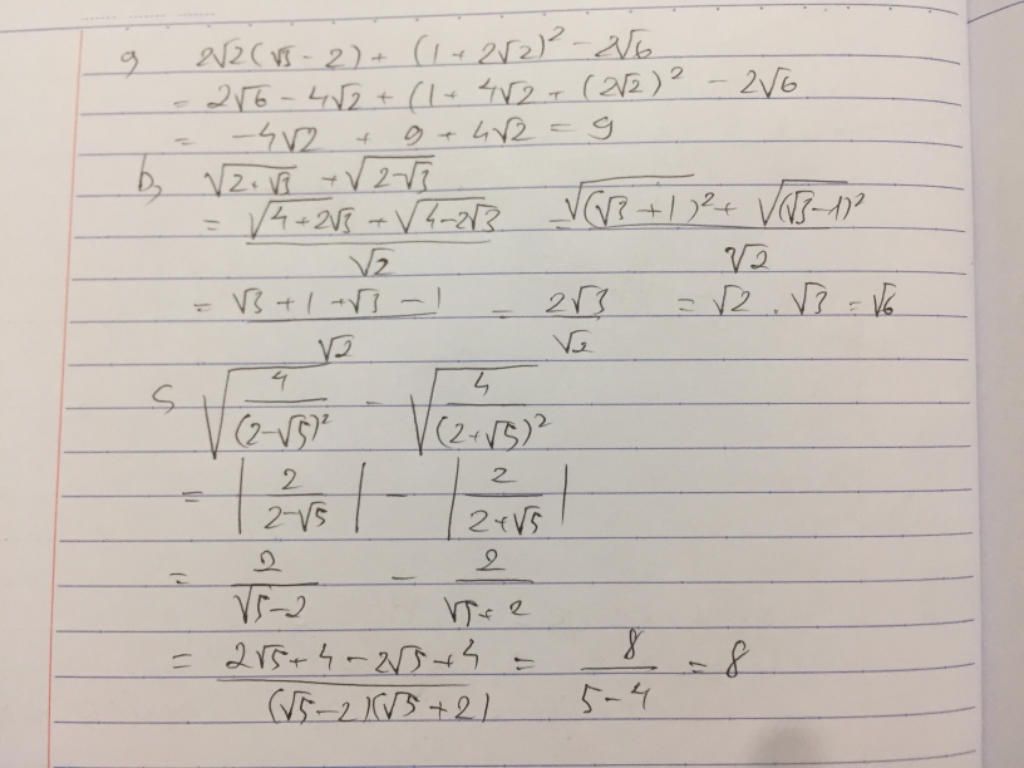 a, 2√2(√3 - 2) + (1 + 2√2)² - 2√6
= 2√6 - 4√2 + (1 + 4√2 + (2√2)² - 2√6
= -4√2 + 9 + 4√2 = 9
b, √(2+√3) + √(2-√3)
= (√(4+2√3) + √(4-2√3))/√2 = (√((√3+1)²) + √((√3-1)²))/√2
= (√3+1+√3-1)/√2 = 2√3/√2 = √2 . √3 = √6
c, √(4/(2-√5)²) - √(4/(2+√5)²)
= |2/(2-√5)| - |2/(2+√5)|
= 2/(√5-2) - 2/(√5+2)
= (2√5+4-2√5+4)/((√5-2)(√5+2)) = 8/(5-4) = 8